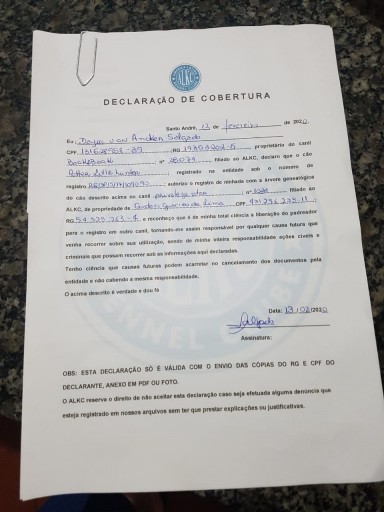 ALKC
DECLARAÇÃO DE COBERTURA
Santo André, 13 de fevereiro de 2020
Eu, Dayse van Ancken Salgado
CPF RG proprietário do canil
nº filiado ao ALKC, declaro que o cão
registrado na entidade sob o número de
registro autorizo o registro de ninhada com a árvore genealógica
do cão descrito acima ao canil nº filiado ao
ALKC, de propriedade de de Lima CPF
RG e reconheço que é de minha total ciência a liberação do padreador
para o registro em outro canil, tornando-me assim responsável por qualquer causa futura que
venha recorrer sobre sua utilização, sendo de minha inteira responsabilidade ações cíveis e
criminais que possam recorrer sob as informações aqui declaradas.
Tenho ciência que causas futuras podem acarretar no cancelamento dos documentos pela
entidade e não cabendo a mesma responsabilidade.
O acima descrito é verdade e dou fé
Data: 13/02/2020
Salgado
Assinatura:
OBS: ESTA DECLARAÇÃO SÓ É VÁLIDA COM O ENVIO DAS CÓPIAS DO RG E CPF DO
DECLARANTE, ANEXO EM PDF OU FOTO.
O ALKC reserva o direito de não aceitar esta declaração caso seja efetuada alguma denúncia que
esteja registrado em nossos arquivos sem ter que prestar explicações ou justificativas.